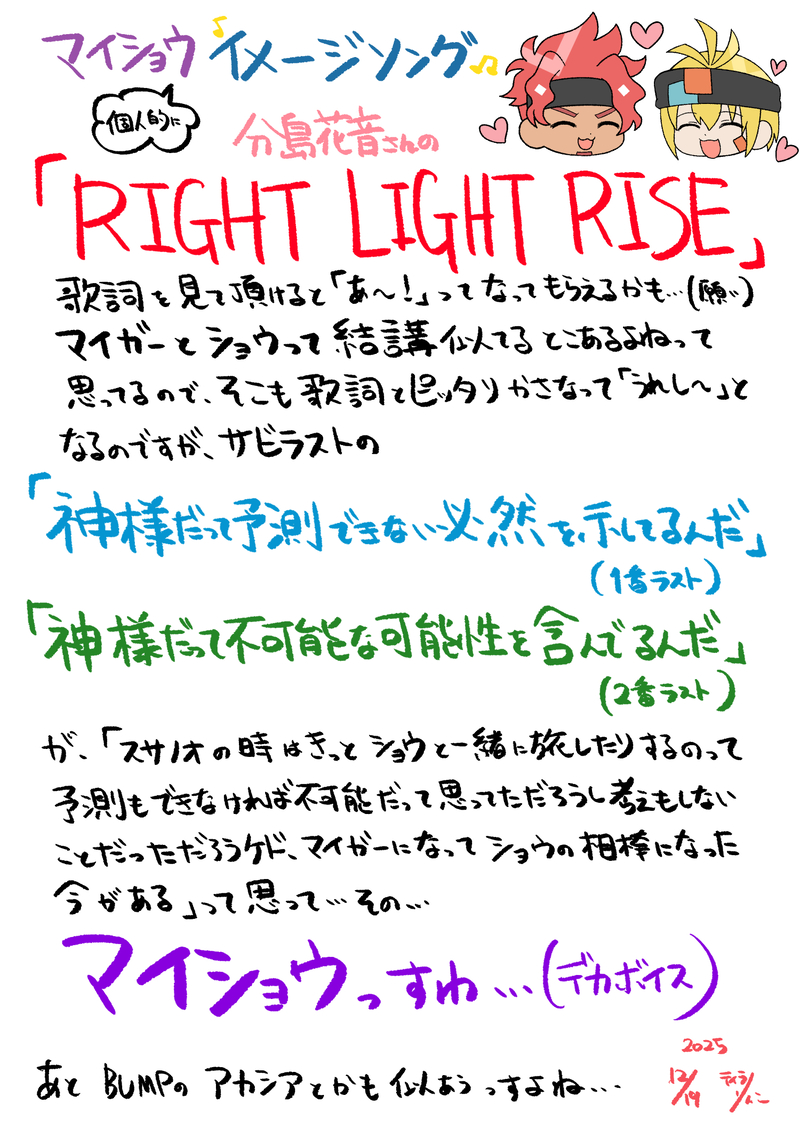 マイショウ イメージソング♫
個人的に
分島花音さんの
「RIGHT LIGHT RISE」
歌詞を見て頂けると「あ〜!」ってなってもらえるかも…(願)
マイガーとショウって結講似てるとこあるよねって
思ってるので、そこも歌詞とピッタリかさなって「うれし〜」と
なるのですが、サビラストの
「神様だって予測できない必然を示してるんだ」
(1番ラスト)
「神様だって不可能な可能性を含んでるんだ」
(2番ラスト)
が、「スサノオの時はきっとショウと一緒に旅したりするのって
予測もできなければ不可能だって思ってただろうし考えもしない
ことだっただろうケド、マイガーになってショウの相棒になった
今がある」って思って…その…
マイショウっすわ…(デカボイス)
あと BUMPの アカシアとかも似合うっすよね…
2025
12/19